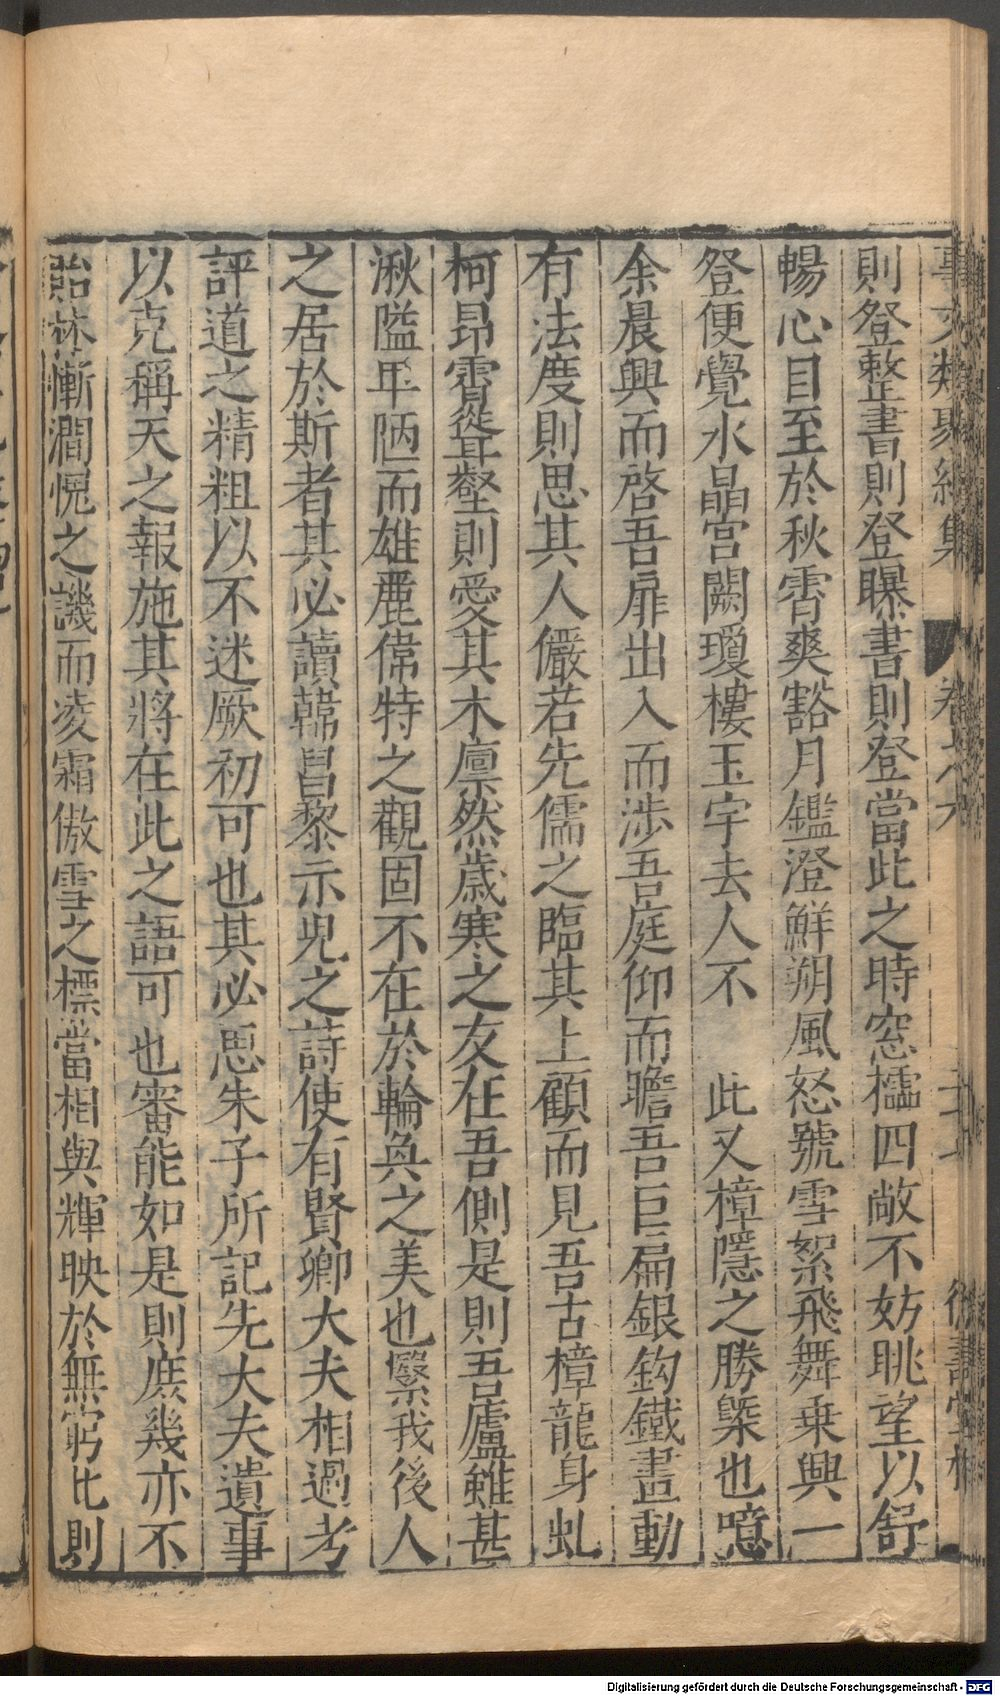 事文類聚續集 卷之六
則登整書則登曝書則登當此之時窓櫺四敞不妨眺望以舒
暢心目至於秋霄爽豁月鑑澄鮮朔風怒號雪絮飛舞乗興一
登便覺水晶宮闕瓊樓玉宇去人不 此又樟隱之勝槩也噫
余晨興而啓吾扉出入而涉吾庭仰而瞻吾巨扁銀鈎鐵畫動
有法度則思其人儼若先儒之臨其上顧而見吾古樟龍身虬
柯昂霄聳壑則愛其木凛然歳寒之友在吾側是則吾廬雖甚
湫隘𤰞陋而雄麗偉特之觀固不在於輪奐之美也緊我後人
之居於斯者其必讀韓昌黎示兒之詩使有賢卿大夫相過考
評道之精粗以不迷厥初可也其必思朱子所記先大夫遺事
以克稱天之報施其將在此之語可也審能如是則庶幾亦不
貽林慚澗愧之譏而凌霜傲雪之標當相與輝映於無窮比則
Digitalisierung gefördert durch die Deutsche Forschungsgemeinschaft - DFG